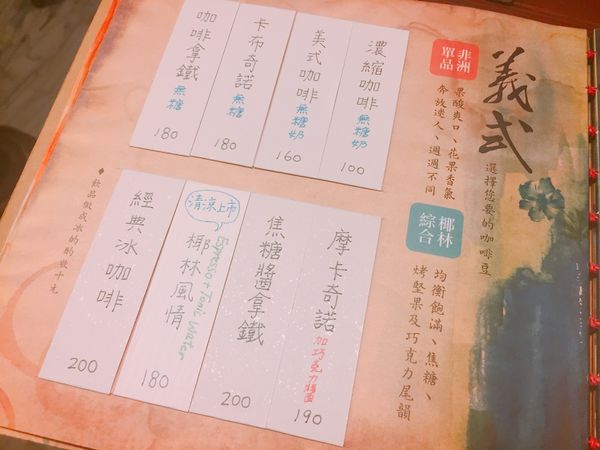 義式
選擇您要的咖啡豆
非洲
單品
果酸爽口、花果香氣
奔放迷人、週週不同
椰林
綜合
均衡飽滿、焦糖、
烤堅果及巧克力尾韻
濃縮咖啡 無糖奶
100
美式咖啡 無糖奶
160
卡布奇諾 無糖
180
咖啡拿鐵 無糖
180
摩卡奇諾 加巧克力醬
190
焦糖醬拿鐵
200
清涼上市
椰林風情
Espresso + Tonic Water
180
經典冰咖啡
200
◆飲品做成冰的酌收十元